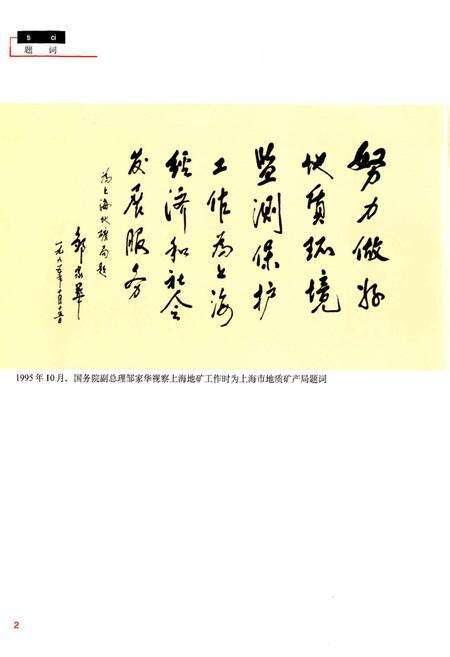 ti ci
题 词
努力做好
地质环境
监测保护
工作为上海
经济和社会
发展服务
为上海地矿局题
邹家华
一九九五年十月十五日
1995年10月，国务院副总理邹家华视察上海地矿工作时为上海市地质矿产局题词
2